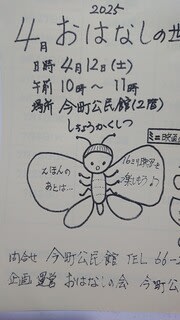 2025
4月 おはなしの世
日時 4月12日(土)
午前 10時〜11時
場所 今町公民館(2階)
しちょうかくしつ
ミニ映画
えほんの
あとは…
16ミリ映写を
楽しもう♪
問合せ 今町公民館 TEL 66-2
企画 運営 おはなしの会 今町公